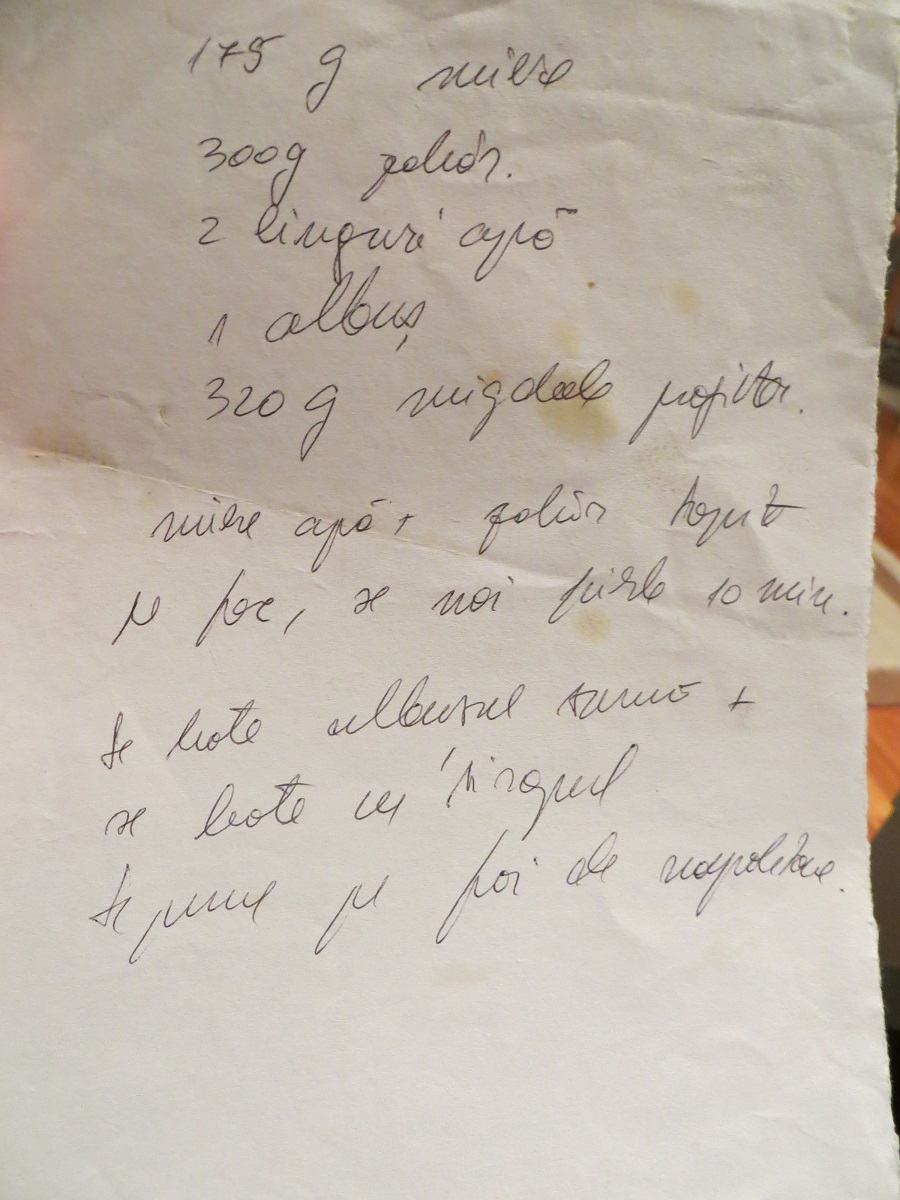 175 g miere
300g zahăr.
2 linguri apă
1 albuș
320 g migdale prăjite.
miere apă + zahăr topit
pe foc, se mai fierbe 10 min.
Se bate albusul spumă +
se bate cu siropul
Se pune pe foi de napolitane.